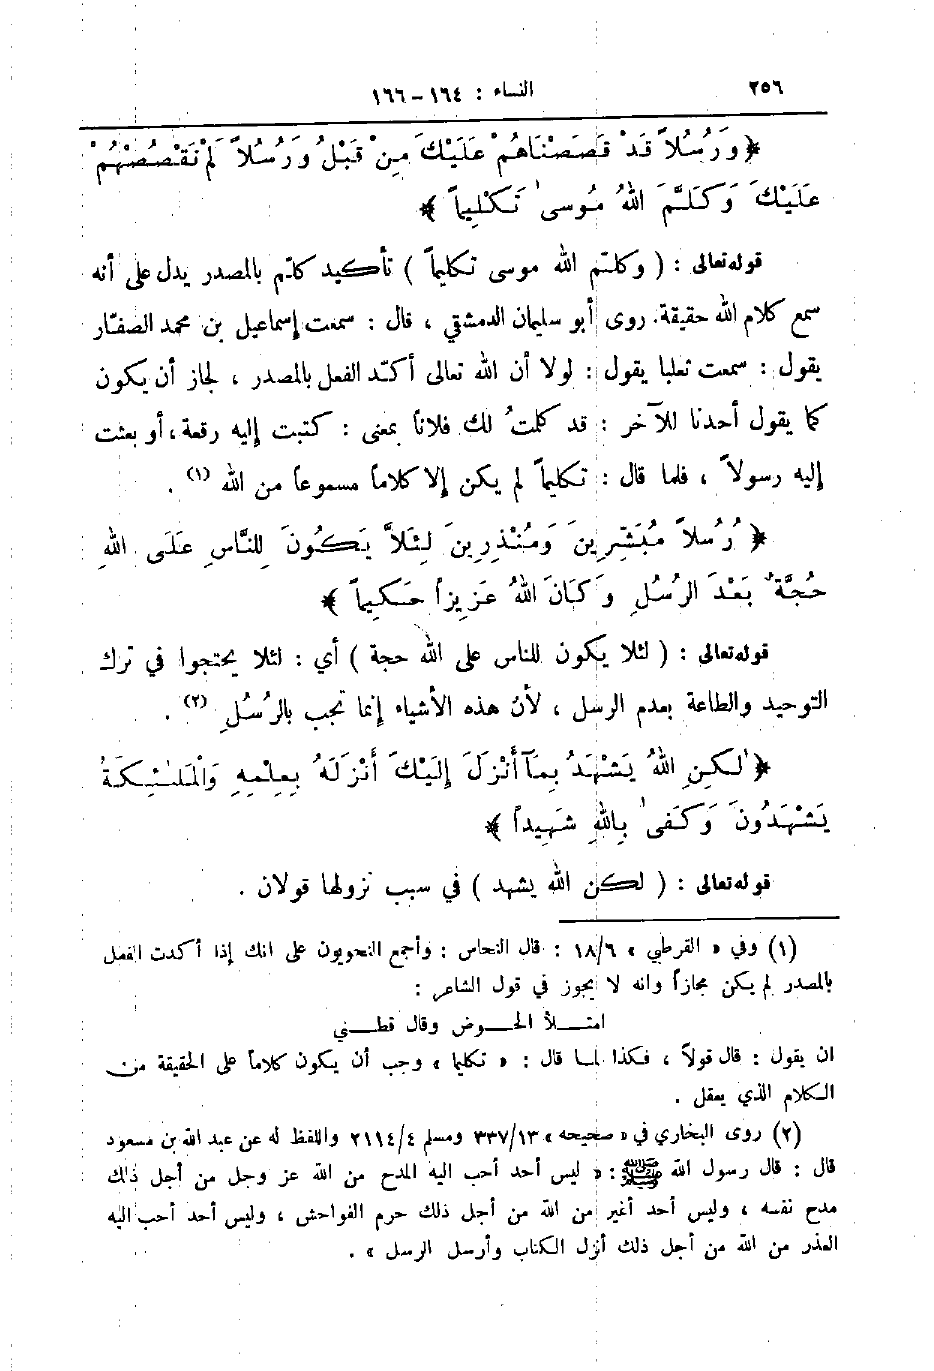 ٢٥٦ النساء : ١٦٤ - ١٦٦
﴿ وَرُسُلاً قَدْ قَصَصْنَاهُمْ عَلَيْكَ مِنْ قَبْلُ وَرُسُلاً لَمْ نَقْصُصْهُمْ
عَلَيْكَ وَكَلَّمَ اللهُ مُوسَىٰ تَكْلِيماً ﴾
قوله تعالى : ( وكلّم الله موسى تكليماً ) تأكيد كلّم بالمصدر يدل على أنه
سمع كلام الله حقيقة. روى أبو سليمان الدمشقي ، قال : سمعت إسماعيل بن محمد الصفّار
يقول : سمعت ثعلبا يقول : لولا أن الله تعالى أكّد الفعل بالمصدر ، لجاز أن يكون
كما يقول أحدنا للآخر : قد كلمتُ لك فلاناً بمعنى : كتبت إليه رقعة، أو بعثت
إليه رسولاً ، فلما قال : تكليماً لم يكن إلا كلاماً مسموعاً من الله (١) .
﴿ رُسُلاً مُبَشِّرِينَ وَمُنْذِرِينَ لِئَلاَّ يَكُونَ لِلنَّاسِ عَلَى اللهِ
حُجَّةٌ بَعْدَ الرُسُلِ وَكَانَ اللهُ عَزِيزاً حَكِيماً ﴾
قوله تعالى : ( لئلا يكون للناس على الله حجة ) أي : لئلا يحتجوا في ترك
التوحيد والطاعة بعدم الرسل ، لأن هذه الأشياء إنما تجب بالرُسُلِ (٢) .
﴿ لٰكِنِ اللهُ يَشْهَدُ بِمَآ أَنْزَلَ إِلَيْكَ أَنْزَلَهُ بِعِلْمِهِ وَالْمَلٰئِكَةُ
يَشْهَدُونَ وَكَفَىٰ بِاللهِ شَهِيداً ﴾
قوله تعالى : ( لكن الله يشهد ) في سبب نزولها قولان .
(١) وفي « القرطبي » ١٨/٦ : قال النحاس : وأجمع النحويون على انك إذا أكدت الفعل
بالمصدر لم يكن مجازاً وانه لا يجوز في قول الشاعر :
امتـلأ الحـوض وقال قطـني
ان يقول : قال قولاً ، فكذا لما قال : « تكليما » وجب أن يكون كلاماً على الحقيقة من
الكلام الذي يعقل .
(٢) روى البخاري في « صحيحه » ٣٣٧/١٣ ومسلم ٢١١٤/٤ واللفظ له عن عبد الله بن مسعود
قال : قال رسول الله ﷺ : « ليس أحد أحب اليه المدح من الله عز وجل من أجل ذلك
مدح نفسه ، وليس أحد أغير من الله من أجل ذلك حرم الفواحش ، وليس أحد أحب اليه
العذر من الله من أجل ذلك أنزل الكتاب وأرسل الرسل » .